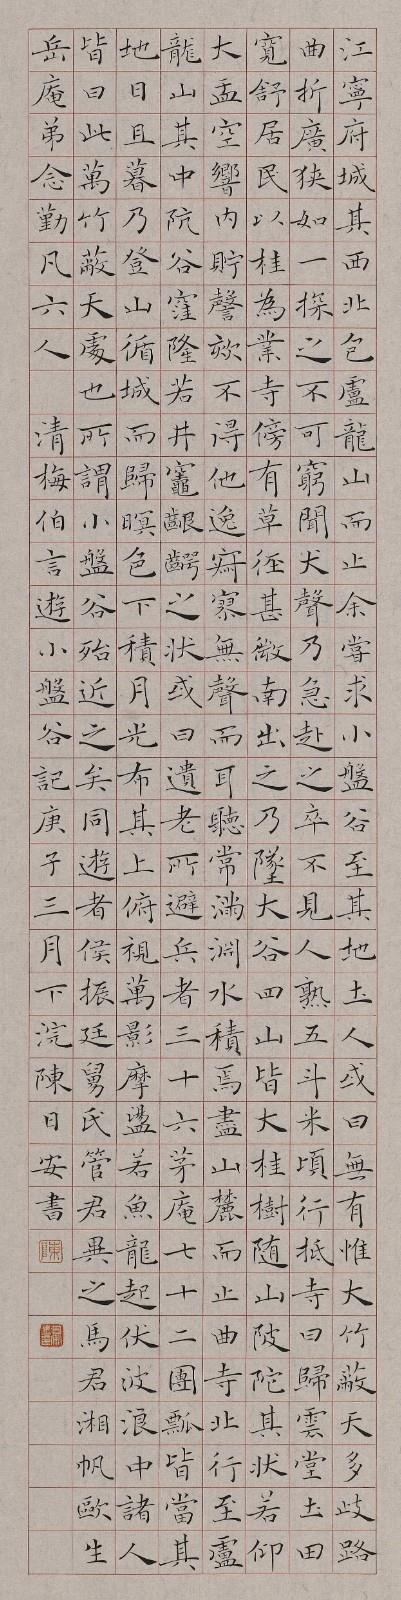 江寧府城其西北包盧龍山而止余嘗求小盤谷至其地土人或曰無有惟大竹蔽天多歧路
曲折廣狹如一探之不可窮聞犬聲乃急赴之卒不見人熟五斗米頃行抵寺曰歸雲堂土田
寬舒居民以桂為業寺傍有草徑甚微南出之乃墜大谷四山皆大桂樹随山陂陀其狀若仰
大盂空響內貯謦欬不得他逸寂寥無聲而耳聽常滿淵水積焉盡山麓而止曲寺北行至盧
龍山其中阬谷窪隆若井竈齦齶之狀或曰遺老所避兵者三十六茅庵七十二團瓢皆當其
地日且暮乃登山循城而歸暝色下積月光布其上俯視萬影摩盪若魚龍起伏波浪中諸人
皆曰此萬竹蔽天處也所謂小盤谷殆近之矣同遊者侯振廷舅氏管君異之馬君湘帆歐生
岳庵弟念勤凡六人 清梅伯言遊小盤谷記庚子三月下浣陳日安書